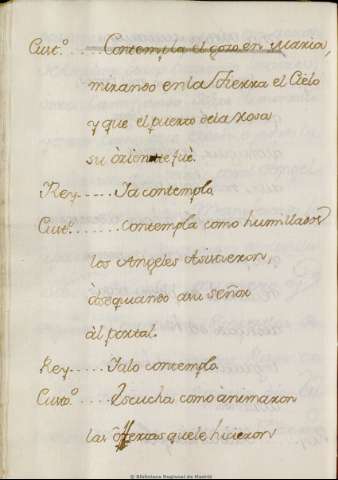 Curt.º ..... Contempla el gozo en Maria,
mirando en la tierra el Cielo
y que el puerto de la rosa
su òriente fuè.
Rey...... Ya contemplo
Curt.º ........ contempla como humillados
los Angeles Asistieron,
àseguando a su señor
àl portal.
Rey..... Ya lo contemplo
Curt.º ..... Escucha como ànimaron
las òfertas que le hicieron
© Biblioteca Regional de Madrid